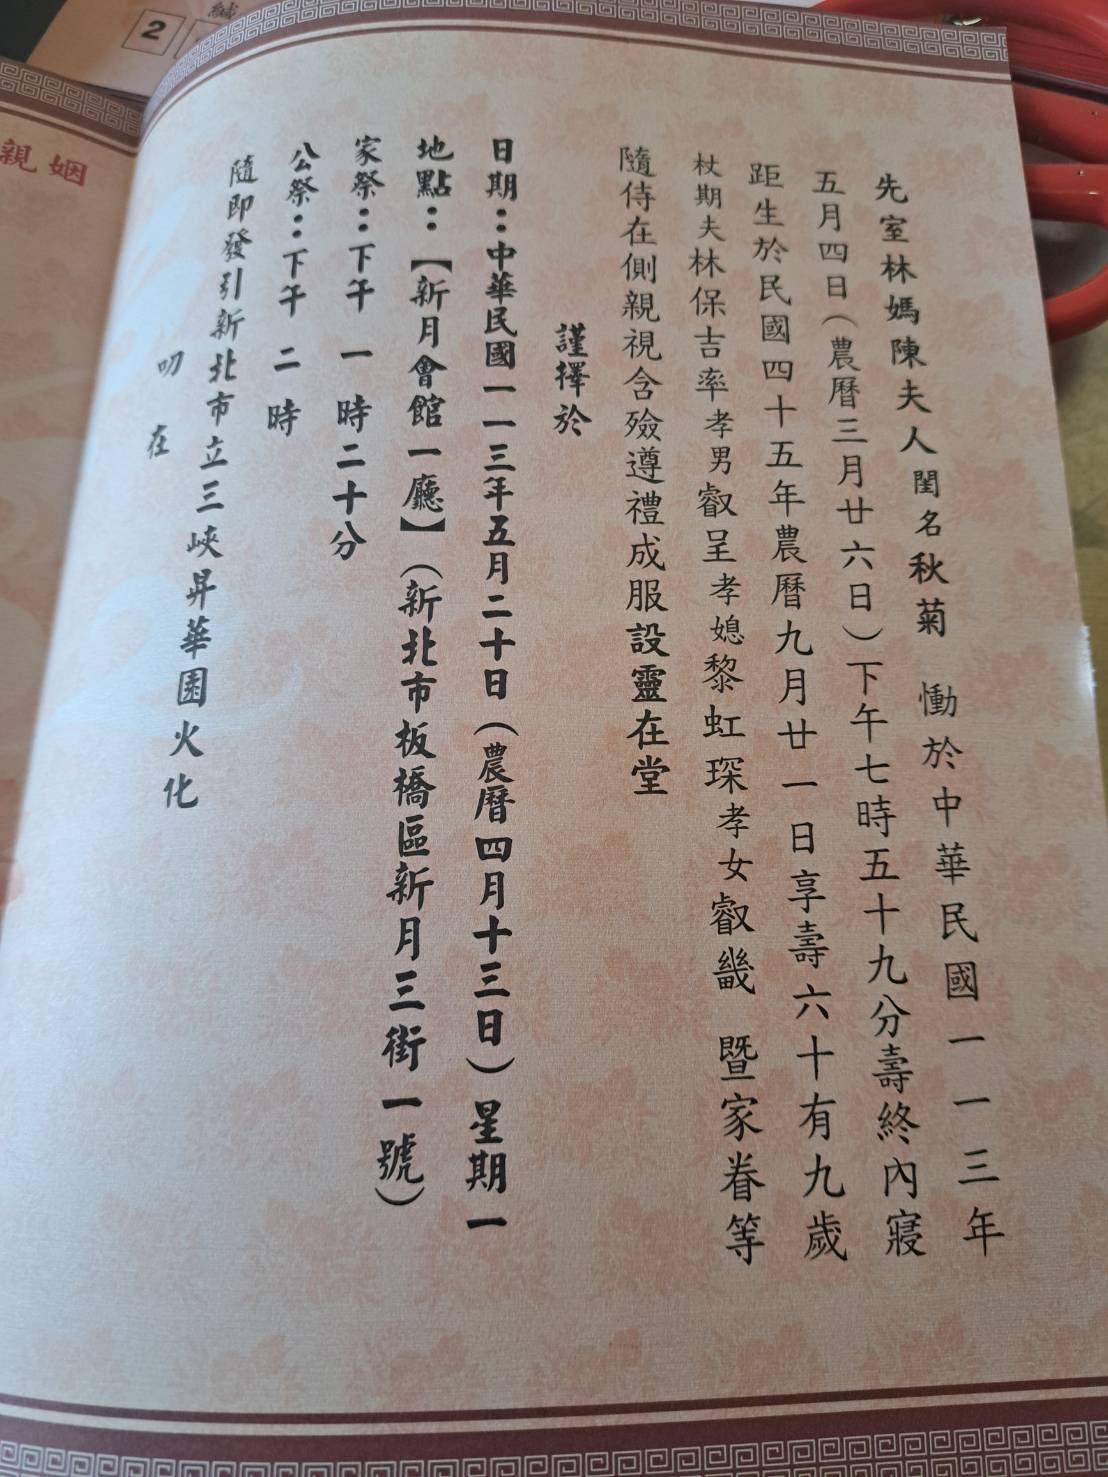 先室林媽陳夫人閨名秋菊 慟於中華民國一一三年
五月四日(農曆三月廿六日)下午七時五十九分壽終內寢
距生於民國四十五年農曆九月廿一日享壽六十有九歲
杖期夫林保吉率孝男叡呈孝媳黎虹琛孝女叡畿 暨家眷等
隨侍在側親視含殮遵禮成服設靈在堂
謹擇於
日期:中華民國一一三年五月二十日(農曆四月十三日)星期一
地點:【新月會館一廳】(新北市板橋區新月三街一號)
家祭:下午 一 時二十分
公祭:下午 二 時
隨即發引新北市立三峽昇華園火化
叨 在
姻親
2
緘